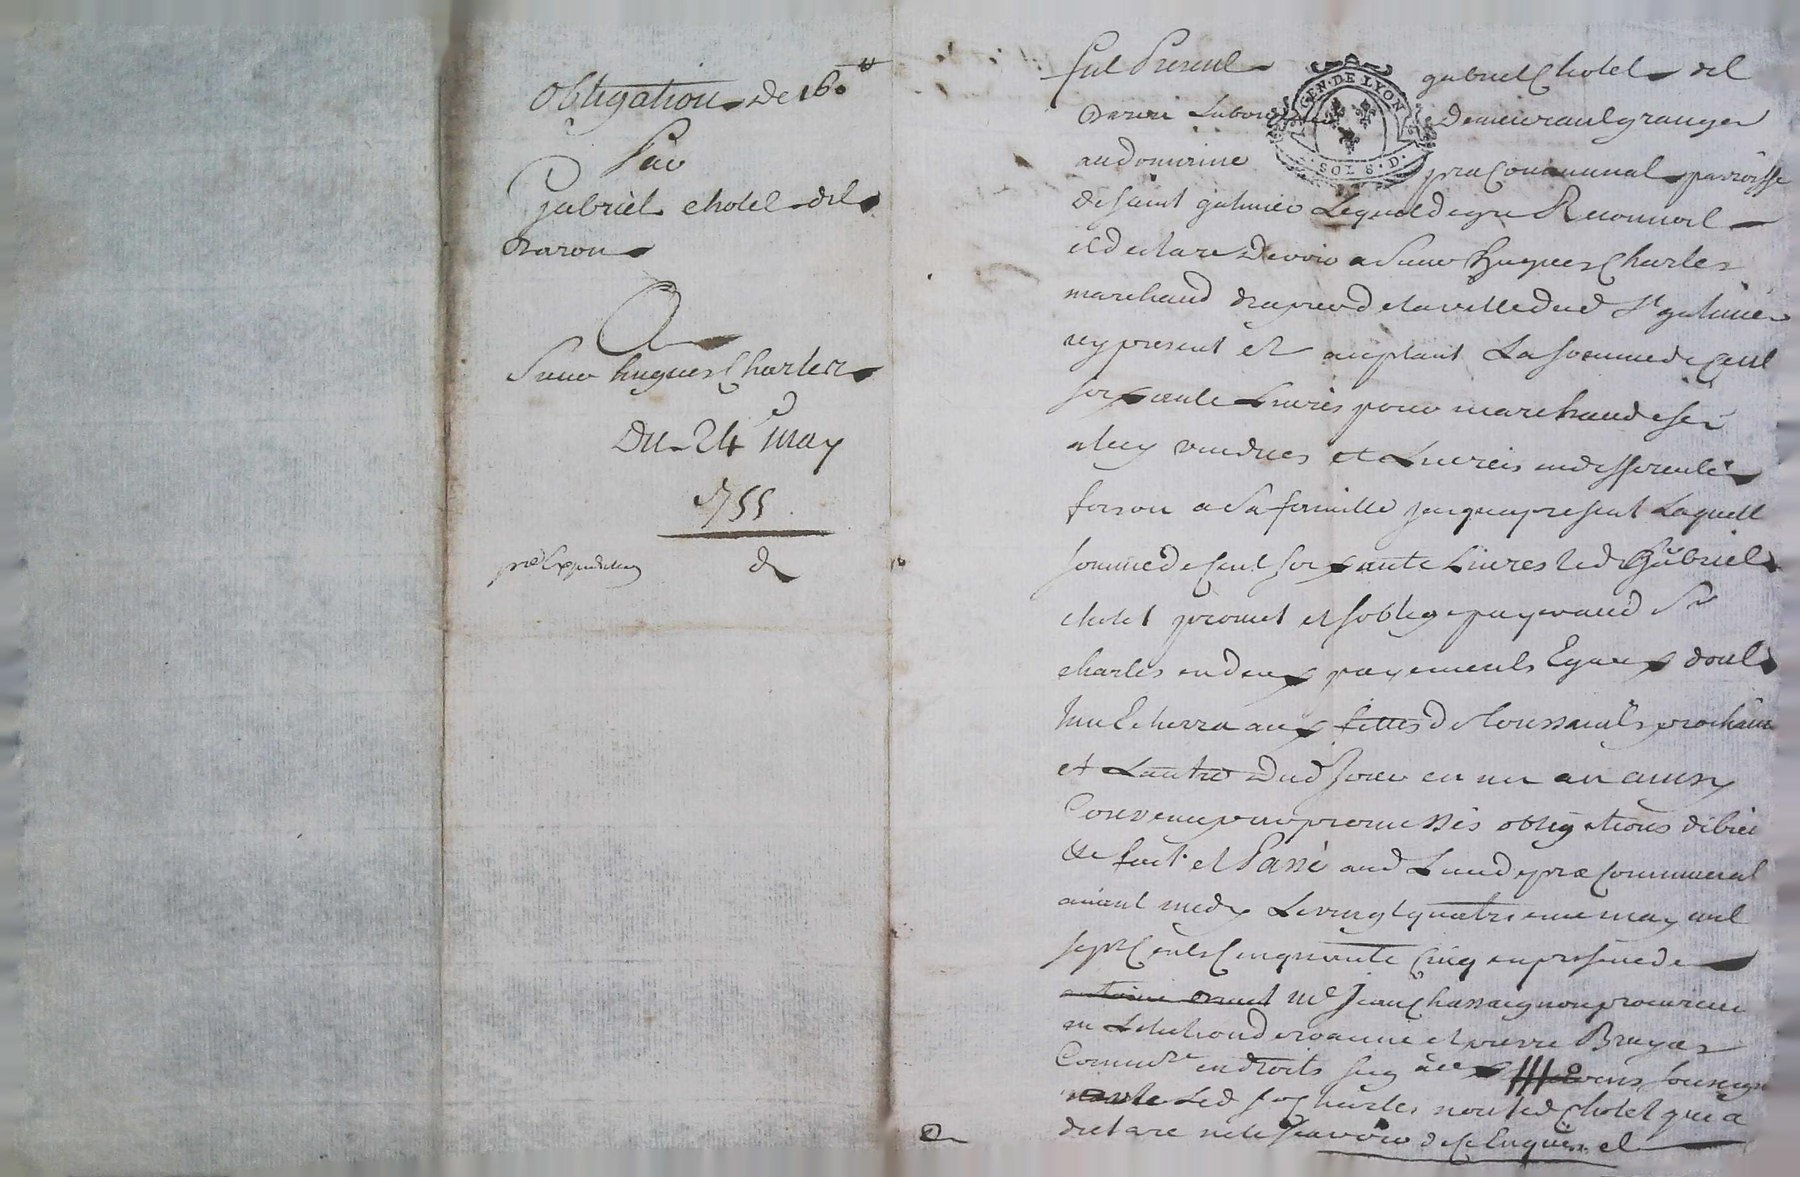 Obligation de 160 ₶
Par
Gabriel chotel dit
Baron
A
Sieur hugues Charles
Du 24e may
1755.
pre Expedition
Fut Present gabriel Chotel dit
Baron Laboureur demeurant granger
au domaine pra Communal parroisse
de saint galmier Lequel de gre Reconnoit
et declare devoir a Sieur Hugues Charles
marchand drapier de la ville dud St galmier
icy present et acceptant La somme de Cent
soixante Livres pour marchandises
a luy vendues et Livrées en differentes
fois ou a sa famille jusqua present Laquelle
somme de Cent soixante Livres led Gabriel
chotel promet et soblige payer aud Sr
charles en deux payements Egaux dont
lun Echerra aux fettes de toussaints prochain
et Lautre dud jour en un an ainsy
Convenu par promesses obligations de biens
&c fait et Passé aud Lieu de pra Communal
avant midy Le vingt quatrieme may mil
sept Cents Cinquante Cinq en presence de
Me Jean Chassaignon procureur
en Lelection de roanne et pierre Bruyas
Commre en droits seig soussignés
avec Led sr Charles non led Chotel qui a
declaré ne le scavoir de ce Enquis et
GEN. DE LYON
SOLS. D.